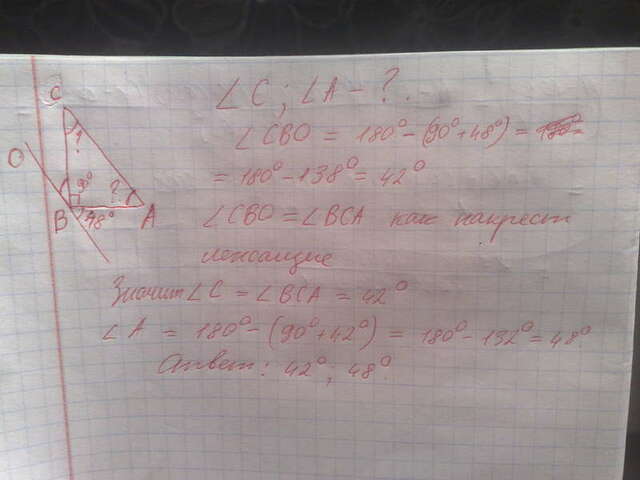 ∠C; ∠A - ?
∠CBO = 180° - (90° + 48°) = 180° =
= 180° - 138° = 42°
∠CBO = ∠BCA как накрест
лежащие
Значит ∠C = ∠BCA = 42°
∠A = 180° - (90° + 42°) = 180° - 132° = 48°
Ответ: 42°; 48°
C
?
O
90°
?
B
48°
A